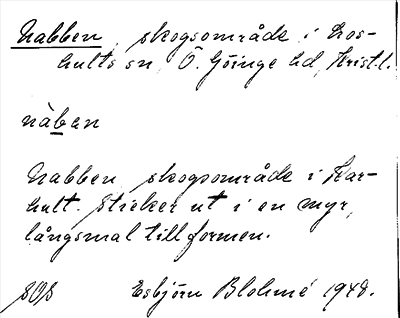 Nabben, skogsområde i Los-
hults sn, Ö. Göinge hd, Krist.l.
nàben
Nabben, skogsområde i Har-
hult. Sticker ut i en myr,
långsmal till formen.
Esbjörn Blohmé 1948.